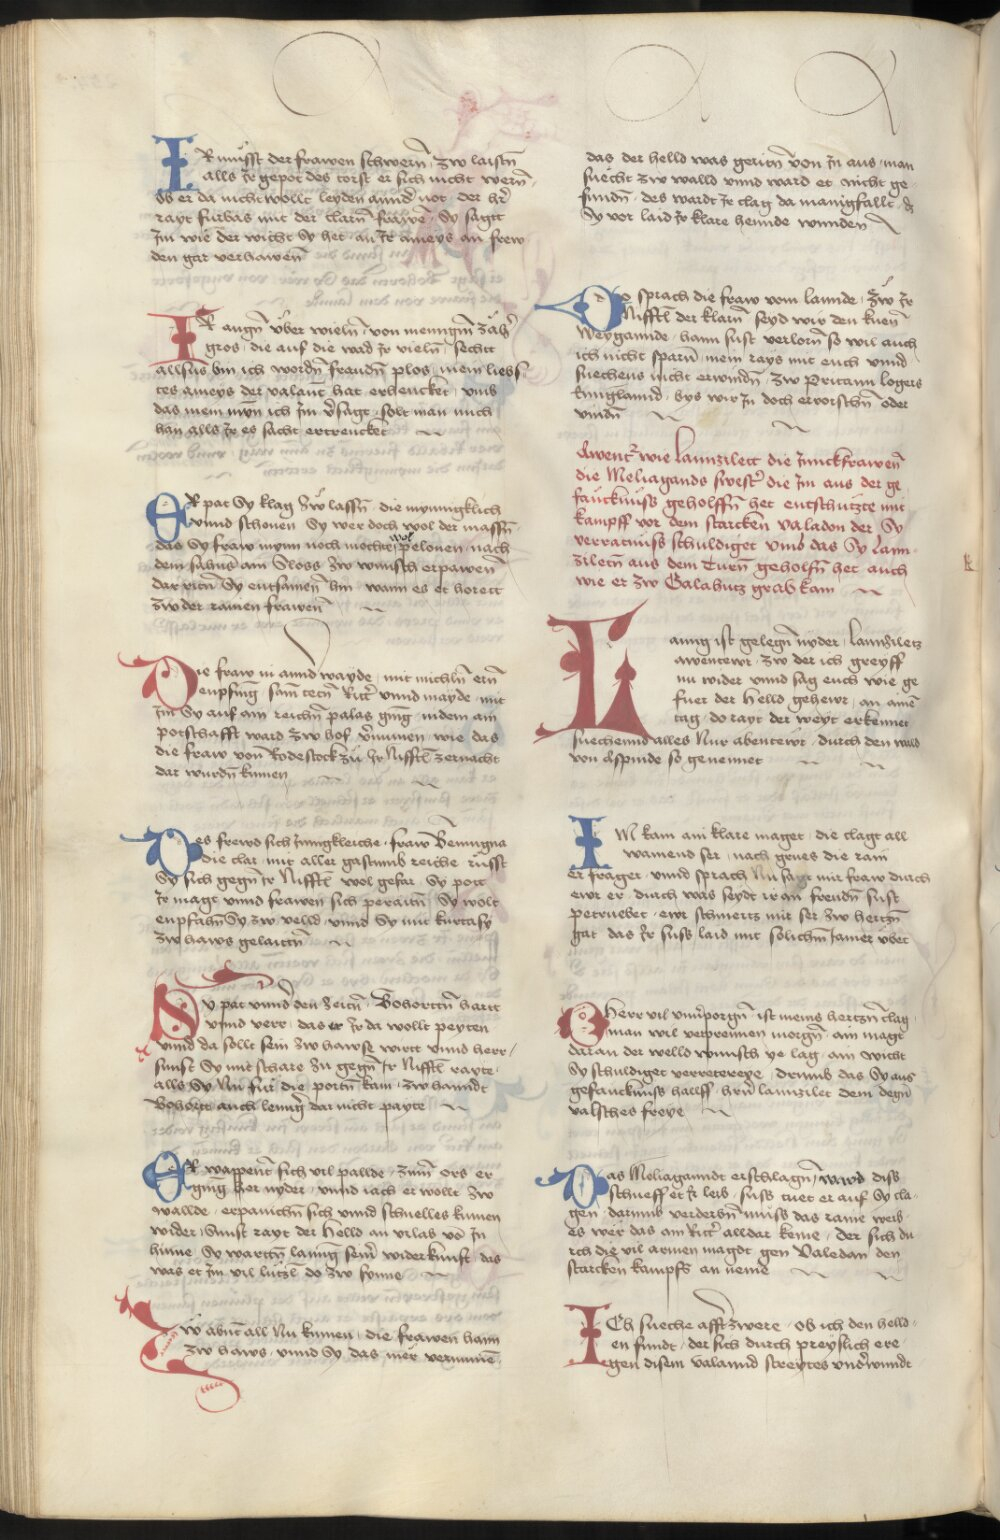 IR müsst der frawen schwern · zw laistn̄
alls Ir gepot des torst er sich nicht wern̄ ·
ob er da nicht wollt leyden annd̄ not · der hr̄
rayt furbas mit der clarn̄ frawe · Sy sagtt
Im wie der wicht Sy het · an Ir ameys an frew
den gar verhawen̄
IR augn̄ über wieln̄ · von mennign̄ zäh̄r
gros · die auf die wad Ir vieln̄ · sechtt
allsus bin ich wordn̄ fraudn̄ plos · mein liebs
tes ameys der valant hat erhencket · vmb
das mein myn̄ ich Im v̄sagt · solt man mich
han alls Ir es sacht ertrencket
ER pat Sy klag zw lassn̄ · die mynnigklich
vnnd schonen Sy wer doch wol der massn̄ ·
das Sy fraw mynn noch mocht wol pelonen · nach
dem sahns ain Sloss zw wunsch erpawen̄
dar ritn̄ Sy entsamen̄ hin · wann es et horett
zw der rainen frawen̄
Die fraw in annd wayde · mit michln̄ ern̄
enpfing · sam tetn̄ Ritt̄ vnnd mayde · mit
Im Sy auf ain reichn̄ palas ging · indem ain
potschafft ward zw hof v̄numen · wie das
die fraw von̄ Rodestock zü Ir Nifftl̄ zernacht
dar wurdn̄ kumen
Des frewd sich Innigkleiche · fraw Benningna
die clar · mit aller gastumb reiche · rüsst
Sy sich gegn̄ Ir Nifftl̄ wol gefar · Sy pott
Ir magt vnnd frawen sich peraitn̄ · Sy wolt
enpfahn̄ Sy zw velld · vnnd Sy mit kurtasy
zw haws gelaittn̄
SV pat vnnd den zeitn̄ · Bohorttn̄ hartt
vnnd verr · das er Ir da wollt peyten
vnnd da sollt sein zw hawse wirtt vnnd herr ·
sunst Sy mit schare zu gegn̄ Ir Nifftl̄ rayte ·
alls Sy Nu fur die portn̄ kam · zw hanndt
Bohortt auch lennḡ dar nicht payte
ER wappent̄ sich vil pallde · zum̄ ors er
ging her nyder · vnnd iach er wollt zw
wallde · erpanichn̄ sich vnnd schnelles kumen
wider · Sunst rayt der Helld an vrlab vō In
hinne · Sy wartn̄ lanng sein̄ widerkunft · das
was et Im vil lützl̄ do zw synne
Zw abnt̄ all Nu kumen · die frawen hann
zw haws · vnnd Sy das mer vernumē ·
das der helld was geritn̄ von In aus · man
suecht zw walld vnnd ward et nicht ge
fundn̄ · des wardt Ir clag da manigfallt · dz
Sy vor laid Ir klare hennde wunden
Do sprach die fraw vom lannde · zw Ir
Nifftl̄ der klarn̄ seyd wir den kuen̄
Weygannde · hann sust verlorn̄ so wil auch
ich nicht sparn̄ · mein rays mit euch vnnd
suechens nicht erwindn̄ · zw Pritann logers
kungkannd · bys wir In doch ervorschn̄ oder
vindn̄
Awent̄ wie Lannzilett die Junckfrawen̄
die Meliagands swest̄ die Im aus der ge
fäncknüss geholffn̄ het entschutzte mit
kampff vor dem starcken valadon der Sy
verratnüss schuldiget vmb das Sy Lann
ziletn̄ aus dem Turn̄ geholfn̄ het auch
wie er zw Galahutz grab kam
Lanng ist gelegn̄ nyder · Lannziletz
awentewr · zw der ich greyff
nu wider vnnd sag euch wie ge
fuer der Helld gehewr · an ainē
tag · do rayt der weyt erkennet
suechennd alles Nur abentewr · durch den wald
von Aspinde so genennet
IM kam ain klare maget · die clagt all
wainend ser · nach grues die rain
er fraget · vnnd sprach Nu sagt mir fraw durch
ewr er · durch was seydt ir an freudn̄ sust
petruebet · ewr schmertz mit ser zw hertzn̄
gat das Ir suss laid mit solichm̄ Jamer übet
O Herr vil vnv̄porgn̄ · ist meins hertzn̄ clag
man wil verprennen morgn̄ · ain magt
daran der welld wunsch ye lag · ain wicht
Sy schuldiget verretereye · drumb das Sy aus
gefanncknüss hallff · hrn̄ lannzilet dem degn̄
valsches freye
Das Meliaganndt erschlagn̄ · wird diss
schueff et Ir leib · suss tuet er auf Sy cla ·
gen · darumb verderbn̄ müss das raine weib ·
es wer das ain Ritt̄ alldar keme · der sich du
rch die vil armen magdt gen Valedan den
starcken kampfs an neme
ICh sueche afft̄ zwere · ob ich den helld ·
en fundt · der sich durch preyslich ere ·
gegen disem valannd streytes vnd̄wundt